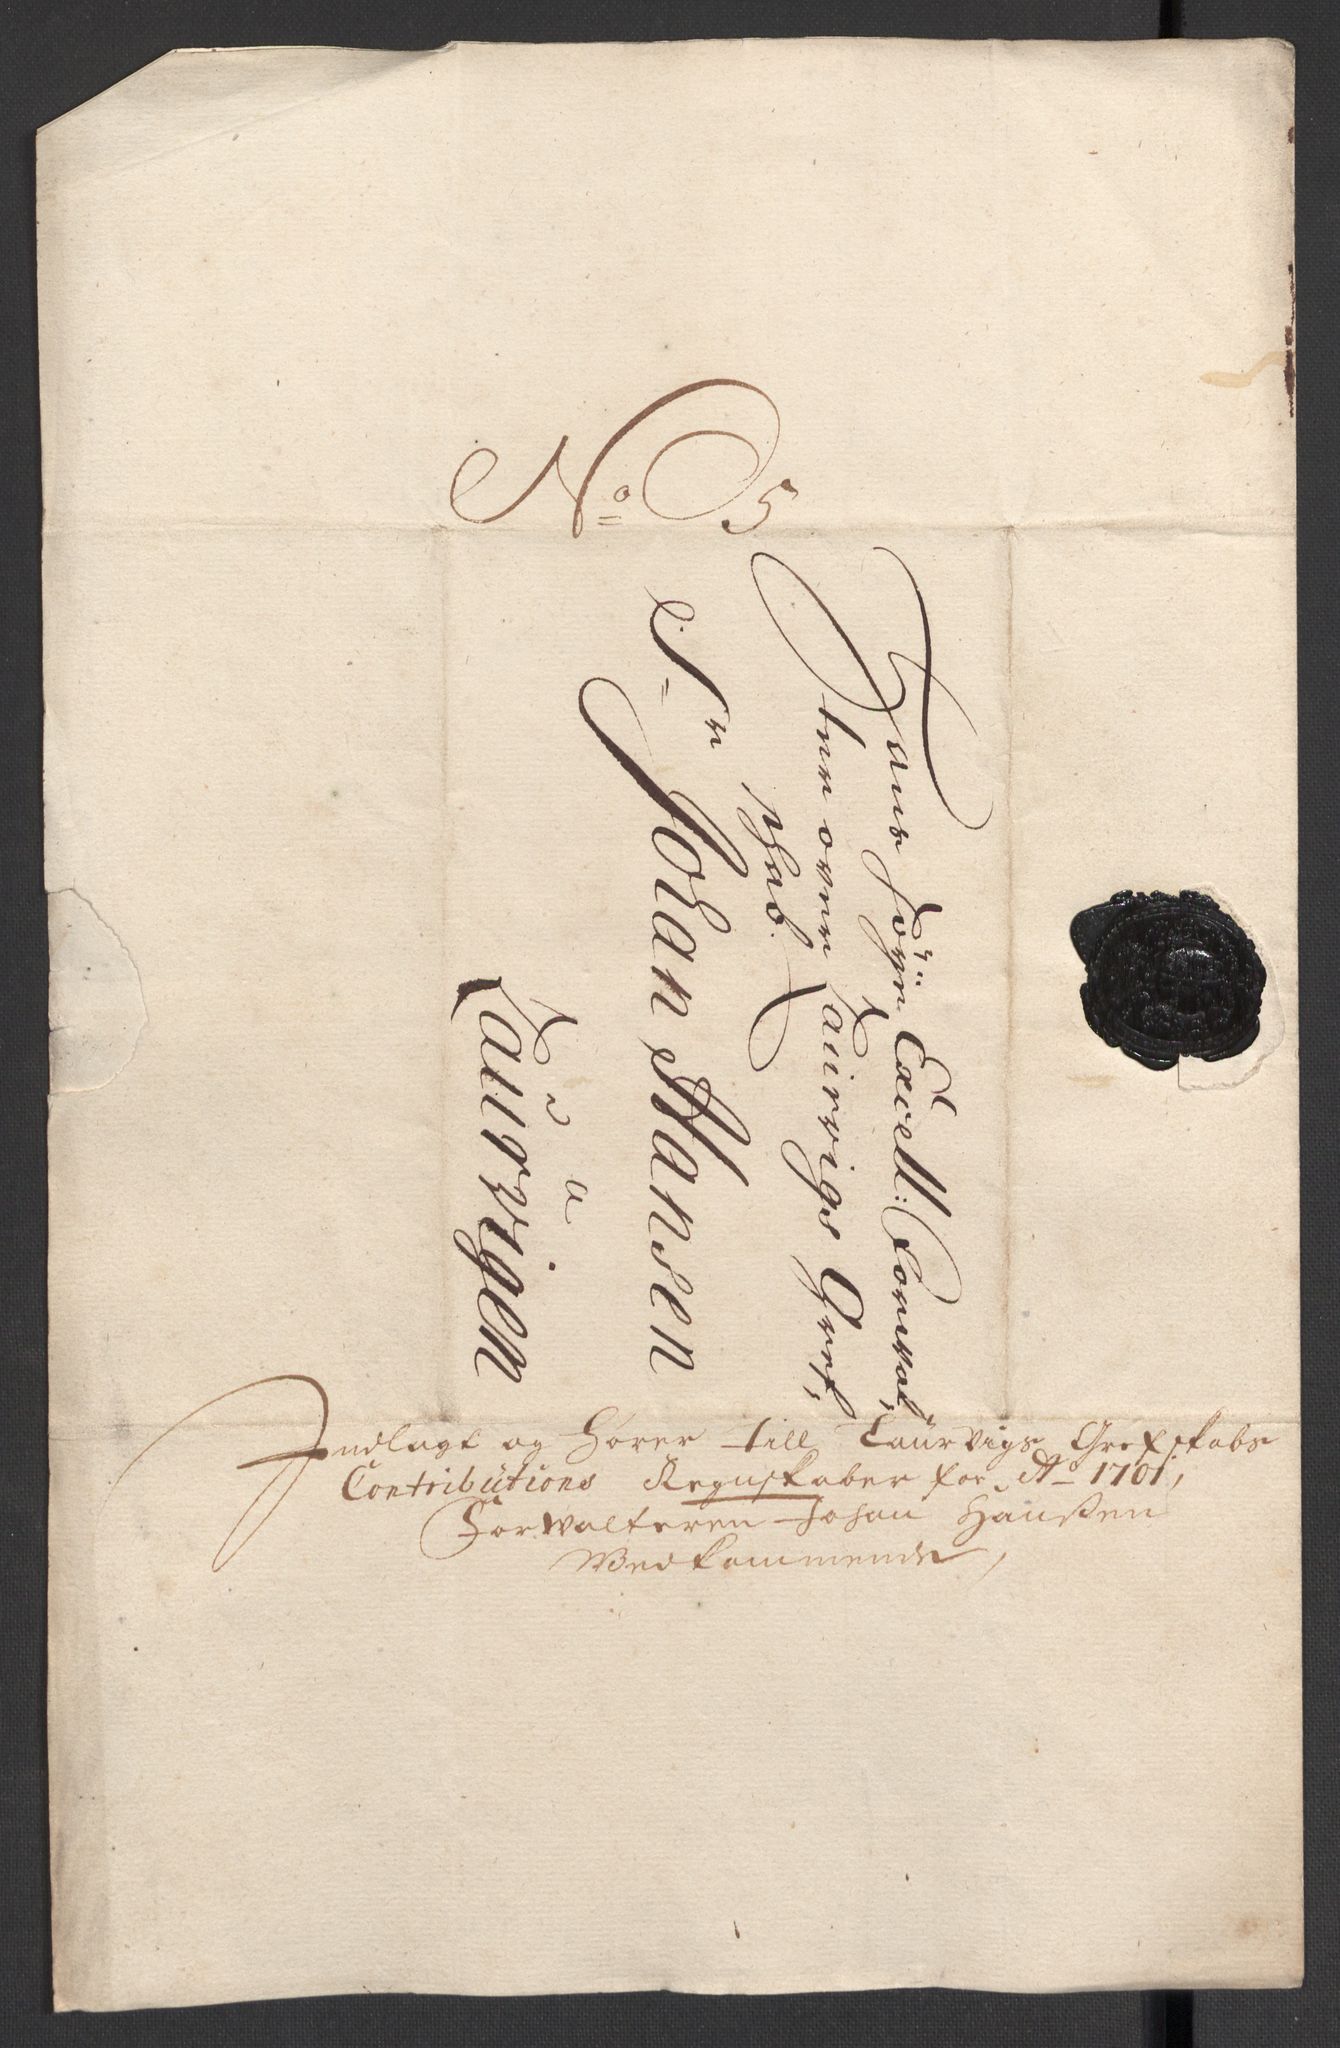 No 5
Hans höÿe Excell: Forval,
ter over Laurvigs Gref,
schab.
Sr Johan Hansen
a
Laurvigen
Indlagt og hörer till Laurvigs Grefskabs
Contributions Regnskaber for Ao 1701,
Forwalteren Johan Hanßen
Vedkommende,